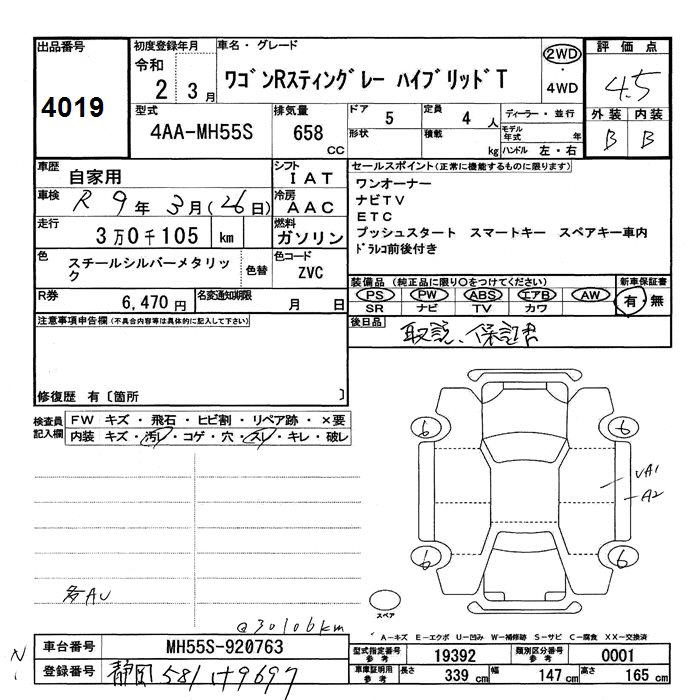 出品番号
4019
初度登録年月
令和
2 3月
車名・グレード
ワゴンRスティングレー ハイブリッドT
2WD
・
4WD
評価点
4.5
外装 内装
B B
型式
4AA-MH55S
排気量
658
cc
ドア 5
形状
定員 4 人
積載 kg
ディーラー・並行
モデル年式 年
ハンドル 左・右
車歴
自家用
シフト
IAT
車検 R 9年 3月(26日)
冷房
AAC
走行
3万0千105 km
燃料
ガソリン
色
スチールシルバーメタリック
色替
色コード
ZVC
R券
6,470円
名変通知期限
月 日
セールスポイント(正常に機能するものに限ります)
ワンオーナー
ナビTV
ETC
プッシュスタート スマートキー スペアキー車内
ドラレコ前後付き
装備品(純正品に限り○をつけてください)
PS PW ABS エアB AW
SR ナビ TV カワ
新車保証書
有・無
後日品
取説、保証書
注意事項申告欄(不具合内容等は具体的に記入して下さい)
修復歴 有〔箇所 〕
検査員記入欄
FW キズ・飛石・ヒビ割・リペア跡・×要
内装 キズ・汚レ・コゲ・穴・スレ・キレ・破レ
6 6
UA1
A2
6 6
各AU
@30106km
スペア
A-キズ E-エクボ U-凹み W-補修跡 S-サビ C-腐食 XX-交換済
車台番号 MH55S-920763
登録番号 静岡 581 け9697
型式指定番号
参考
19392
類別区分番号
参考
0001
車庫証明用
参考
長さ 339 cm 幅 147 cm 高さ 165 cm